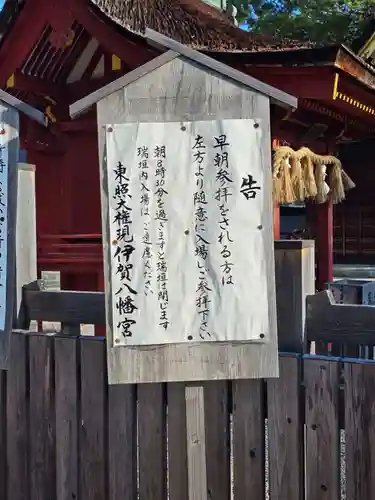 告
早朝参拝をされる方は
左方より随意に入場しご参拝下さい
朝8時30分を過ぎますと瑞垣は閉門します
瑞垣内入場はご遠慮ください
東照大権現 伊賀八幡宮